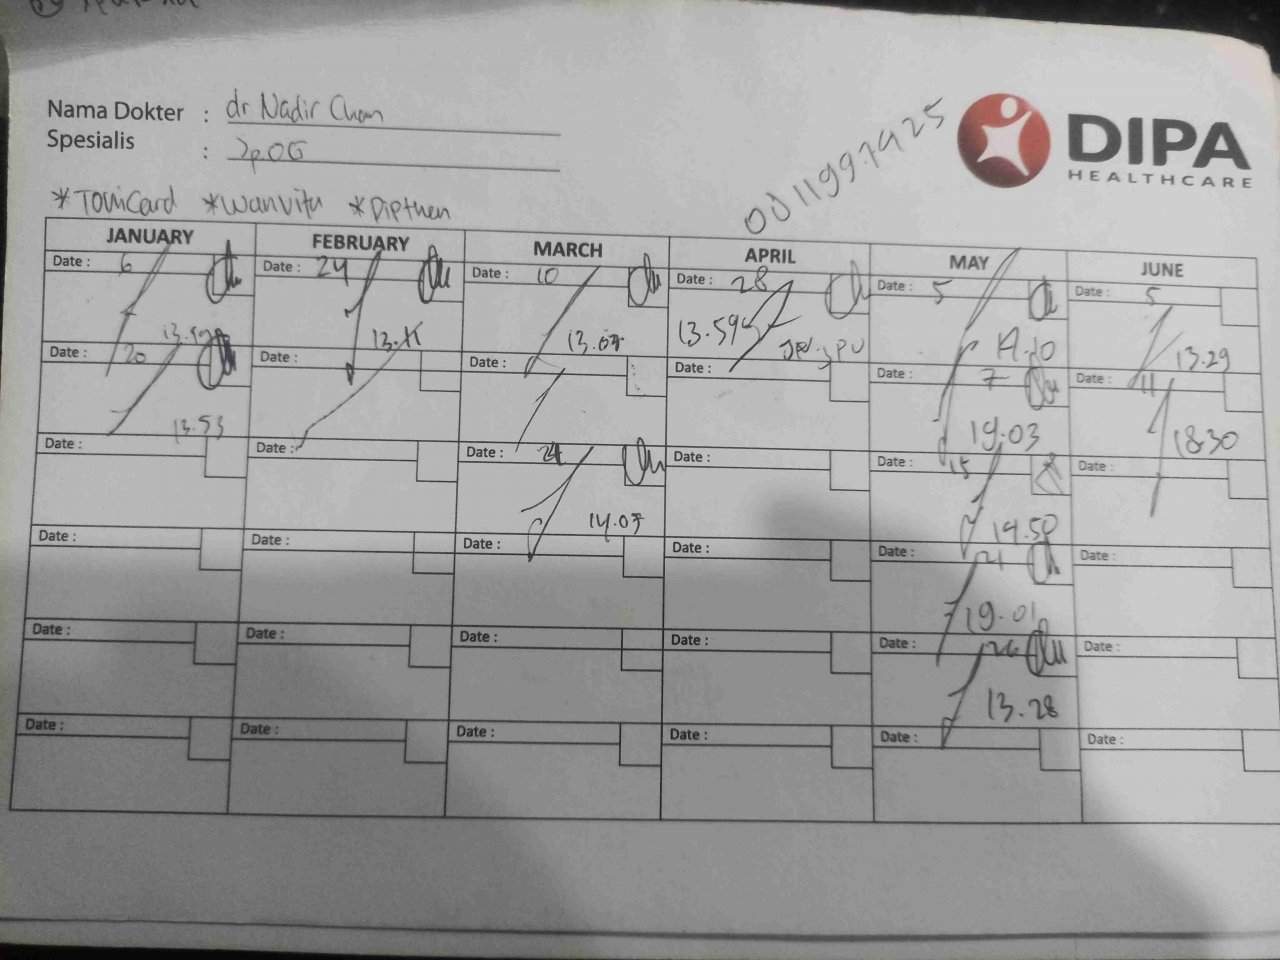 Nama Dokter : dr Nadir Chan
Spesialis : SpOG
0011997925
DIPA
HEALTHCARE
*TomiCard *Wanvita *Dipthen
JANUARY FEBRUARY MARCH APRIL MAY JUNE
Date : 6 Date : 24 Date : 10 Date : 28 Date : 5 Date : 5
13.07 13.59 19.10 13.29
Date : 20 Date : Date : Date : Date : 7 Date : 11
13.53 19.03 18.30
Date : Date : Date : 24 Date : Date : 15 Date :
14.07 19.50
Date : Date : Date : Date : Date : 21 Date :
19.01
Date : Date : Date : Date : Date : 26 Date :
13.28
Date : Date : Date : Date : Date : Date :